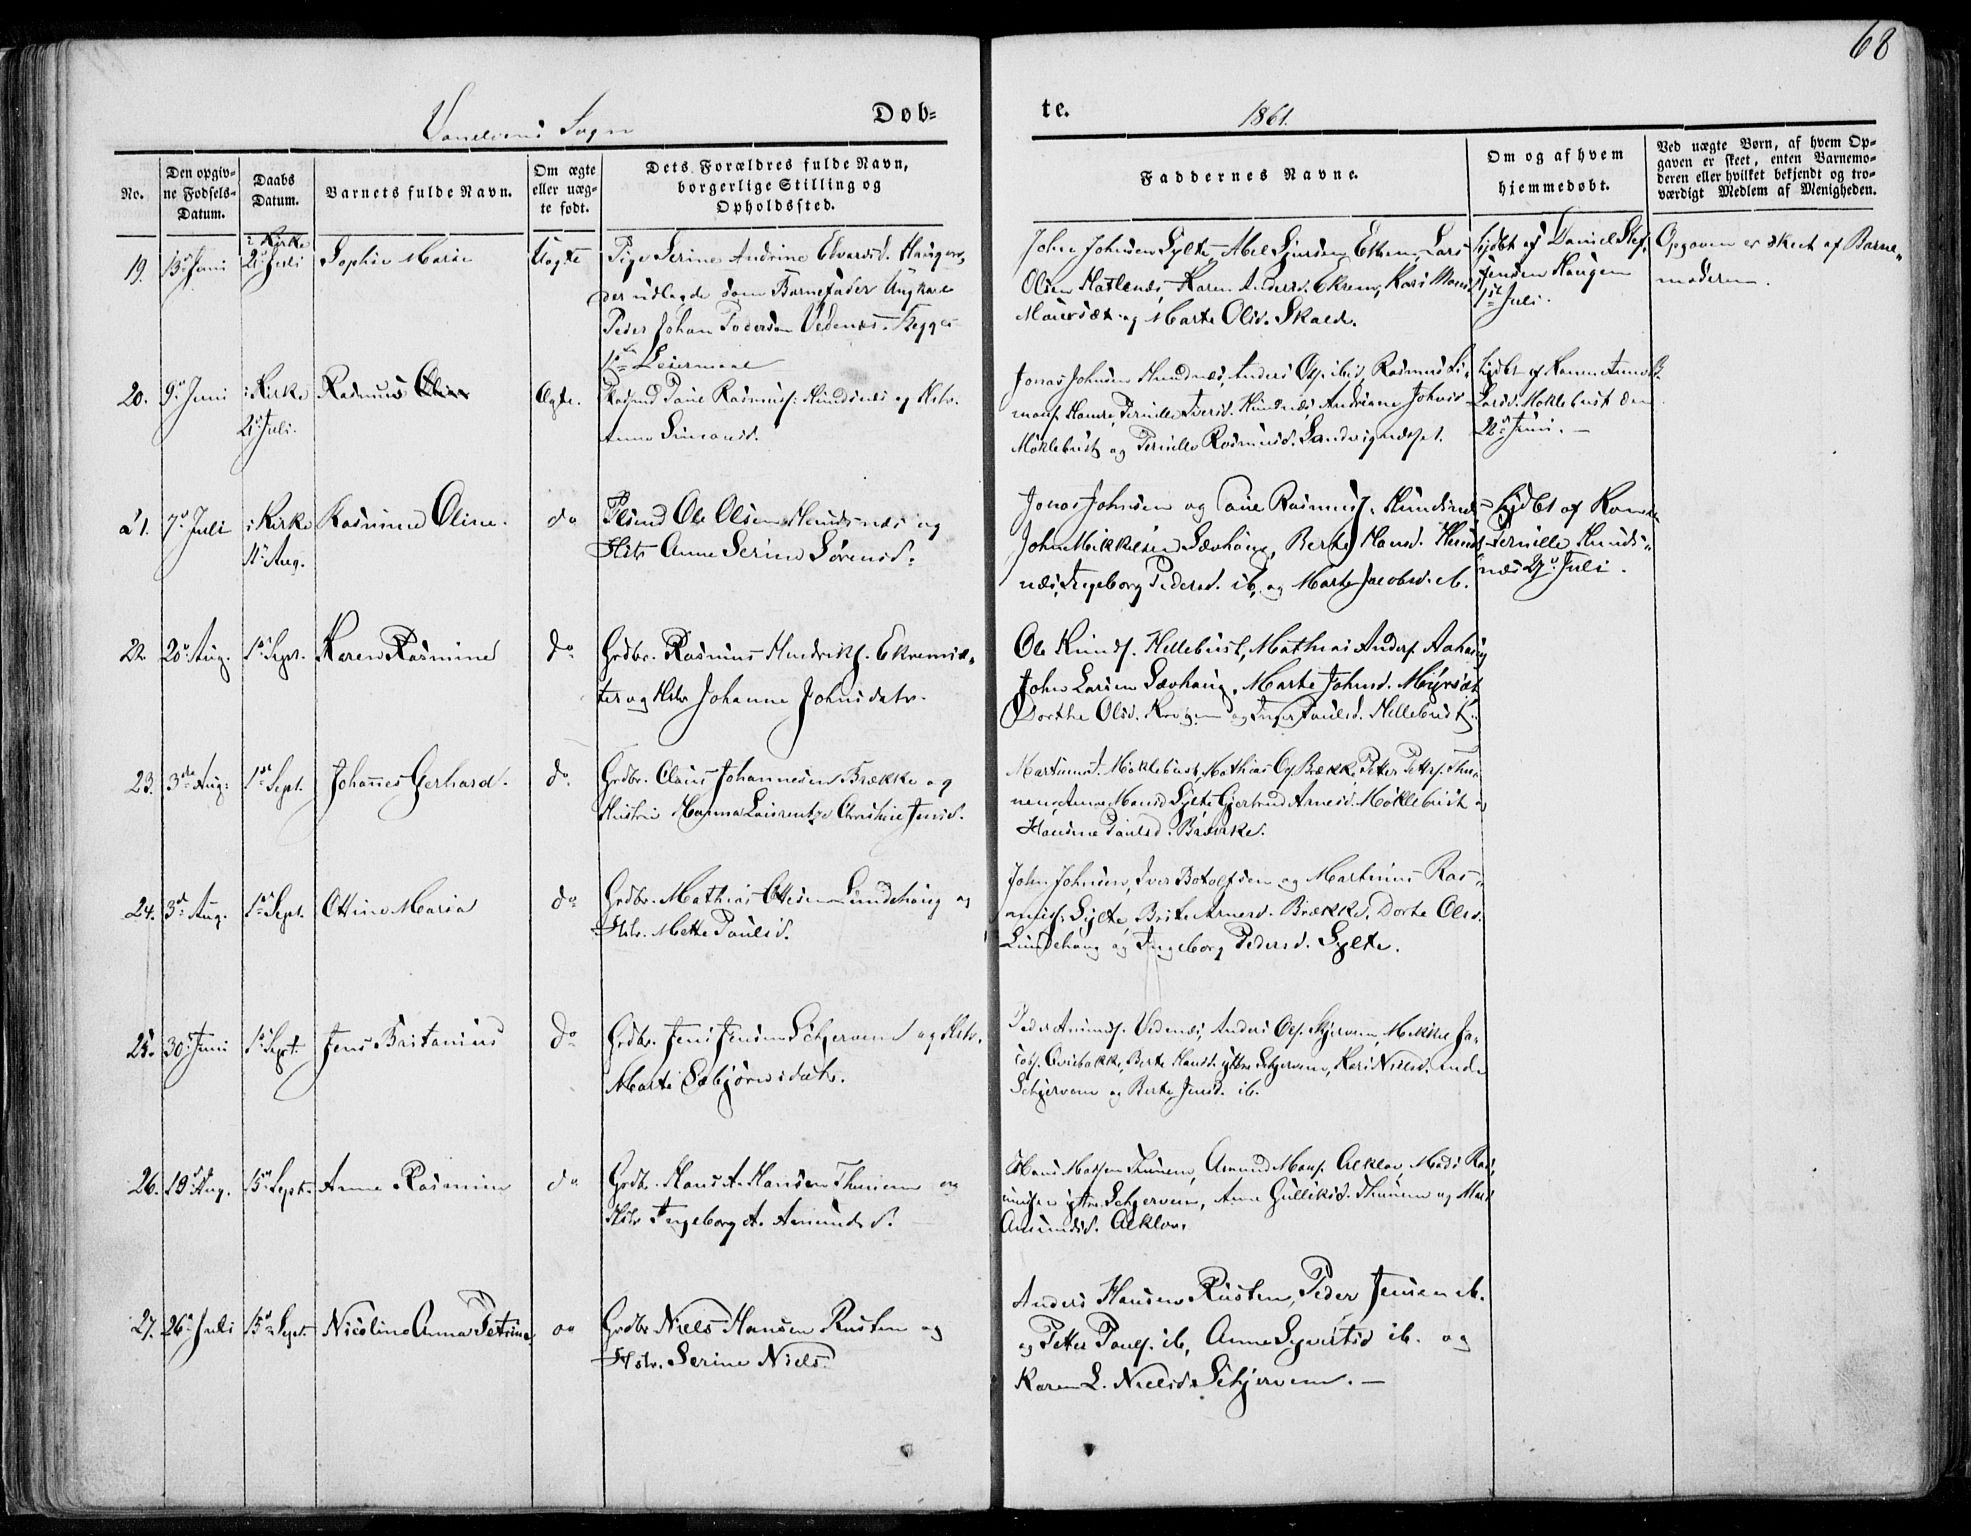 68
Sogn
Døb-
te.
1861.
No.
Den opgiv-
ne Fødsels-
Datum.
Daabs
Datum.
Barnets fulde Navn.
Om ægte
eller uæg-
te født.
Dets Forældres fulde Navn,
borgerlige Stilling og
Opholdssted.
Faddernes Navne.
Om og af hvem
hjemmedøbt.
Ved uægte Børn, af hvem Op-
gaven er skeet, enten Barnemo-
deren eller hvilket bekjendt og tro-
værdigt Medlem af Menigheden.
19. 13de Juni
i Kirke
21 Juli
Sophie Marie
Uægte
Pige Serine Andrine Edvardsd. Haugen,
der udlagde som Barnefader Ungkarl
Peder Johan Pedersen Vedenes. Begges
1ste Leiermaal
John Johnsen Sylte, Abel Ekrem, Lars
Olsen Hatlenes, Karen Andersd. Ekrem, Kari Monsd
og Marte Olsd. Skald.
Hjdbt af Daniel Stef-
fensen Haugen
1ste Juli.
Opgaven er skeet af Barne-
moderen.
20. 9de Juni
i Kirke
21 Juli.
Rasmus
Ægte.
Pladsmd Paul Rasmuss: Hundsnes og Hstr.
Anne Simonsd.
Jonas Johnsen Hundnes, Anders Ols. ibid, Rasmus Si-
mons. Hamre, Pernille Iversd. Hundnes, Andriane Johnsd
Moklebust og Pernille Rasmusd. Sandvignesset.
Hjdbt af
Larsd. Moklebust den
22de Juni. -
21. 7de Juli
i Kirke
11te Aug.
Rasmine Oline.
do
Plsmd Ole Olsen Hundsnes og
Hstr Anne Serine Sørensd.
Jonas Johnsen og Paul Rasmuss. Hundsnes
John Mikkelsen Sævhaug, Berte Hansd. Hunds-
nes, Ingeborg Pedersd. ib, og Marte Jacobsd. ib.
Hjdbt af Kone
Pernille Hunds-
nes 27de Juli.
22. 20de Aug.
1ste Sept.
Karen Rasmine
do
Grdbr. Rasmus Hendriks. Ekremsæ-
ter og Hstr Johanne Johnsdatr.
Ole Knuds. Hellebust, Mathias Anders. Aahaug
John Larsen Sævhaug, Marte Johnsd.
Dorthe Olsd. og Inger Paulsd. Hellebust.
23. 3die Aug:
1ste Sept.
Johannes Gerhard.
do
Grdbr. Claus Johannesen Brække og
Hustru Hanna Laurentze Christine Jensd.
Martinus J. Moklebust, Mathias Ols Brække, Petter Petters. Thu-
nem, Anne Monsd Sylte, Gjertrud Arnesd. Moklebust og
Hansine Paulsd. Brække.
24. 3die Aug.
1ste Sept.
Ottine Maria
do
Grdbr. Mathias Ottesen Lundehaug og
Hstr. Mette Paulsd.
John Johnsen, Iver Botolfsen og Martinus Ras-
muss. Sylte, Brite Arnesd. Brække, Dorte Olsd.
Lundehaug og Ingeborg Pedersd. Sylte.
25. 30te Juni
1ste Sept.
Jens Britanius
do
Grdbr. Jens Jensen Schjervem og Hstr.
Marte Sæbjørnsdatr.
Peder Amunds. Vedenes, Anders Ols. Skjervem, Mikkel Ja-
cobs. Ovrebakke, Berte Hansd. yttre Schjervem, Kari Nielsd. indre
Schjervem og Berte Jensd. ib.
26. 19de Aug.
15de Sept.
Anne Rasmine
do
Grdbr. Hans A. Hansen Thunem og
Hstr Ingeborg A. Amundsd.
Hans Madsen Thunem, Amund Mons. Aklev, Mads Ras-
mussen yttre Schjervem, Anne Gulliksd. Thunem og
Amundsd. Aklev.
27. 26de Juli
15de Sept.
Nicoline Anna Petrine
do
Grdbr Niels Hansen Rusten og
Hstr. Serine Nielsd.
Anders Hansen Rusten, Peder Jensen ib.
og Petter Pouls. ib, Anne Syvertsd ib. og
Karen L. Nielsd. Schjervem. -